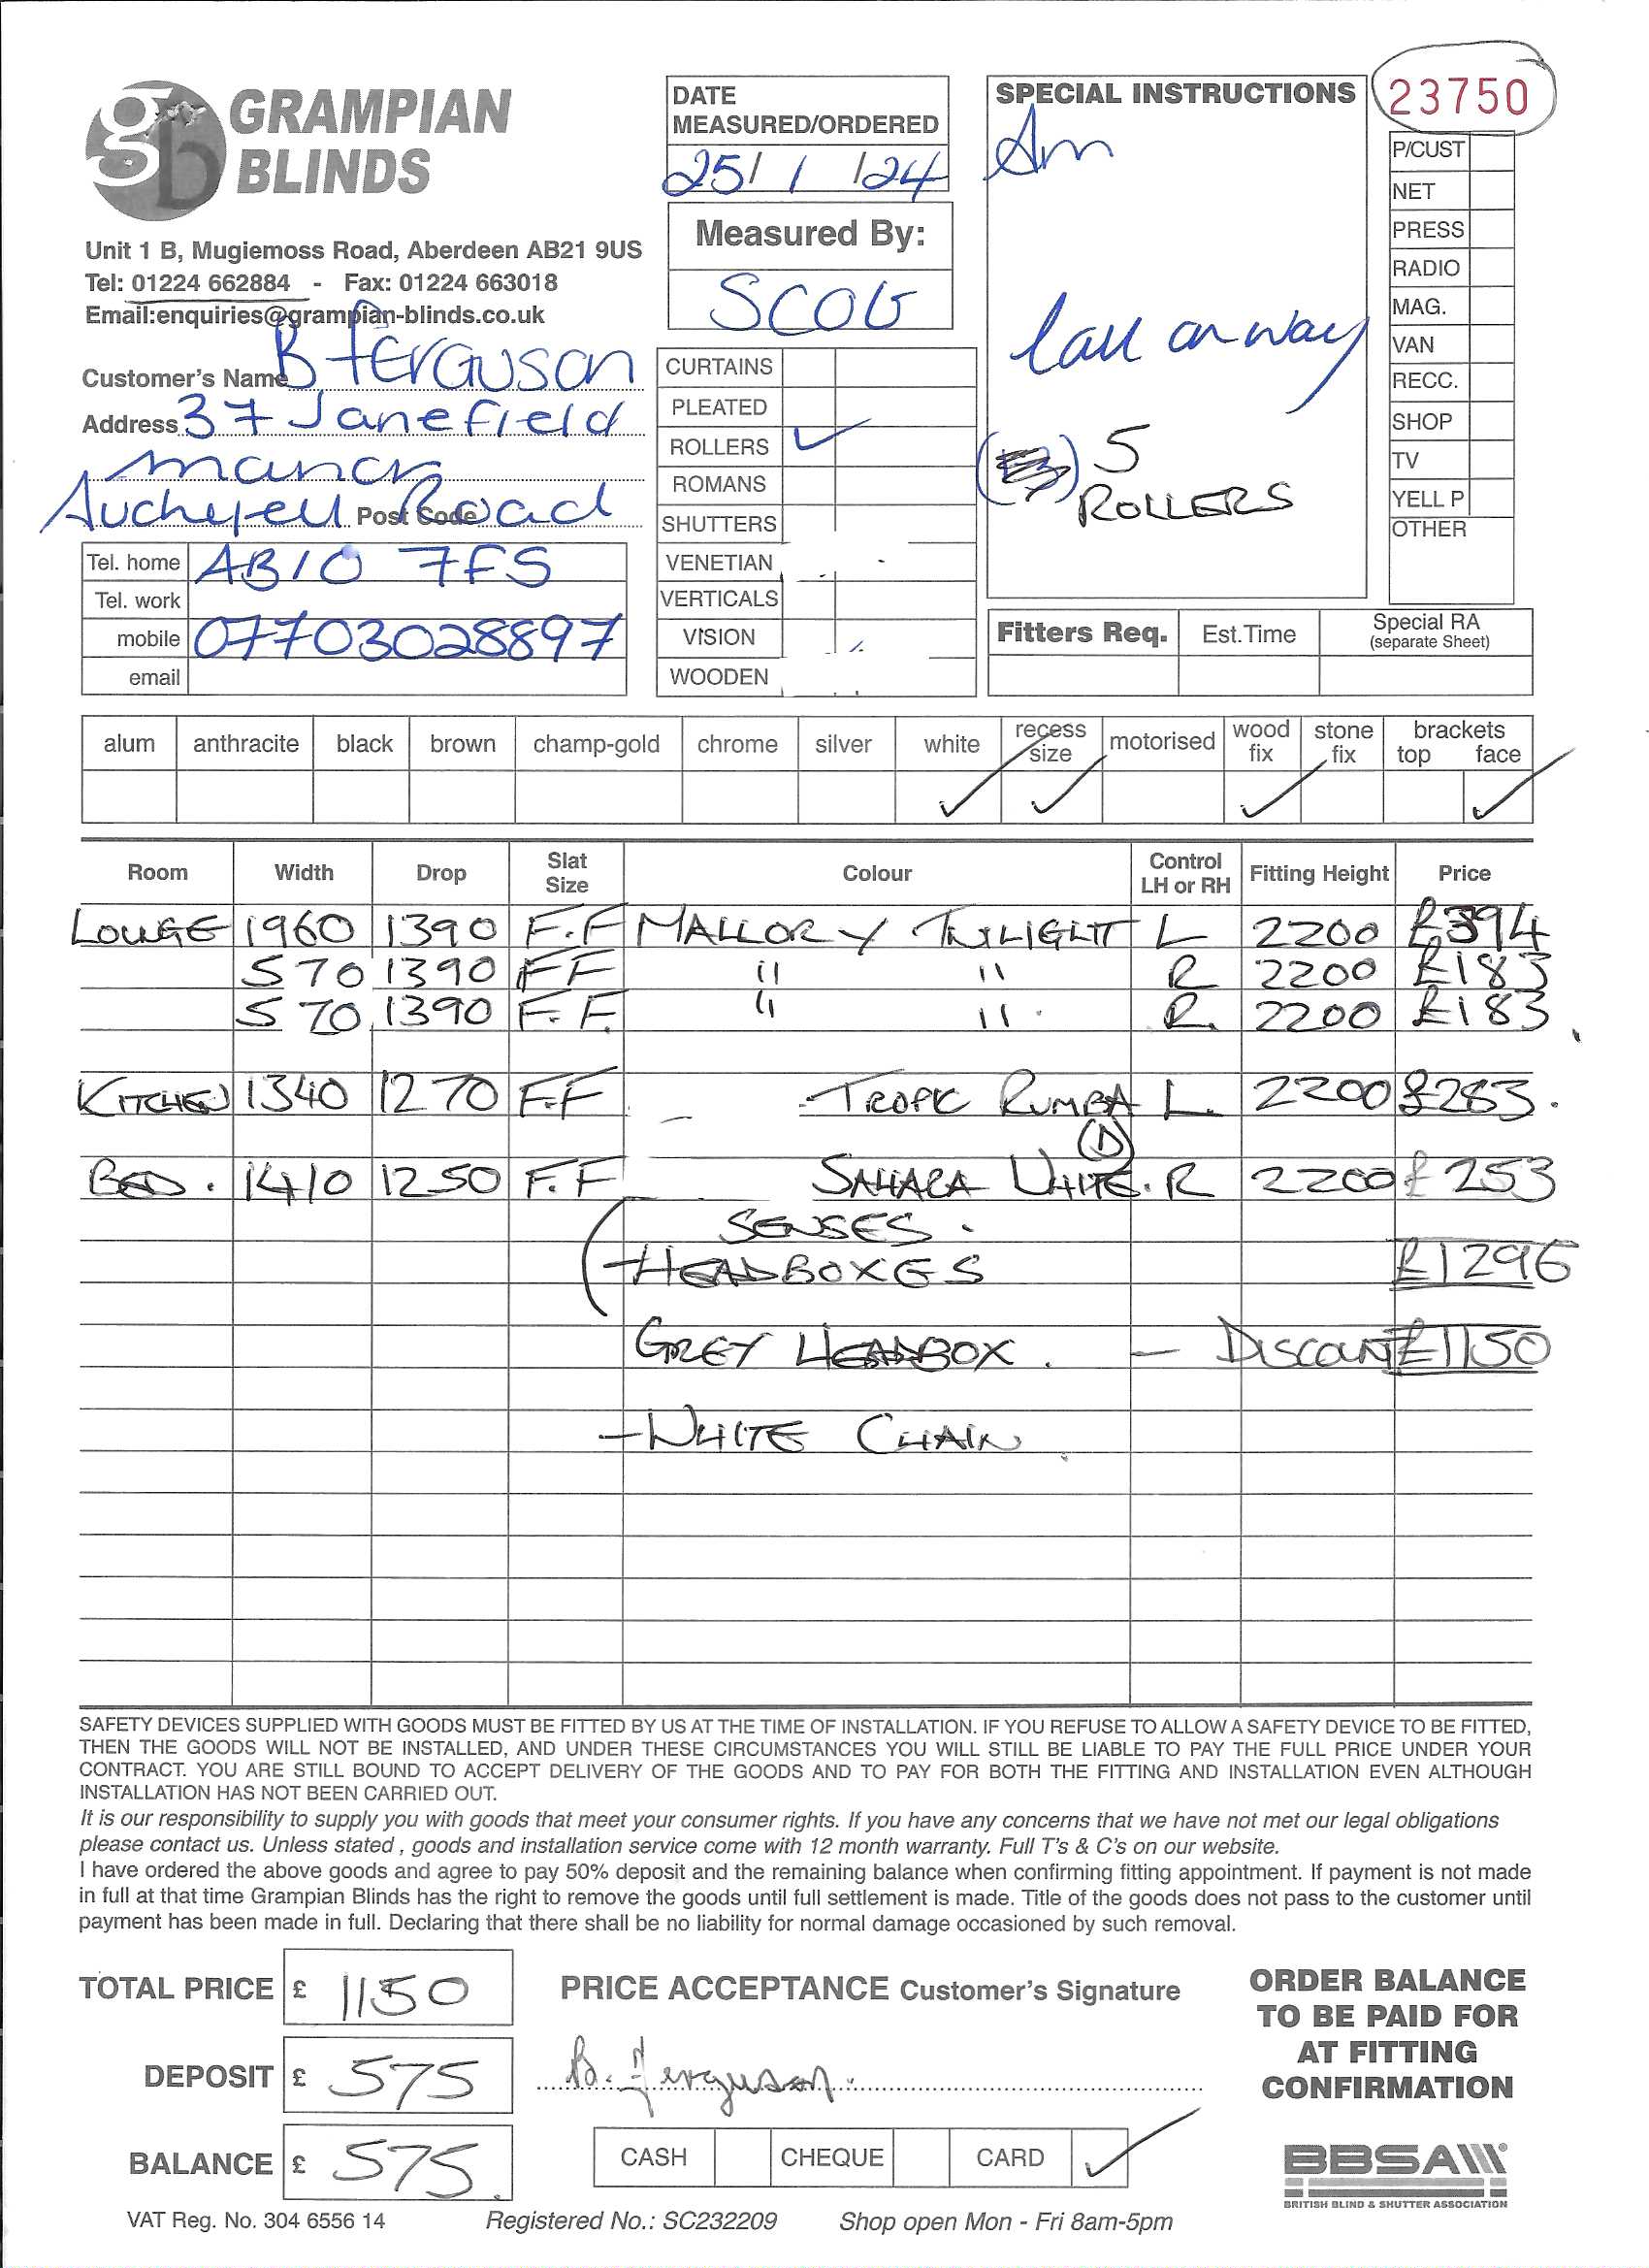 GRAMPIAN
BLINDS
Unit 1 B, Mugiemoss Road, Aberdeen AB21 9US
Tel: 01224 662884 - Fax: 01224 663018
Email:enquiries@grampian-blinds.co.uk
Customer's Name B Ferguson
Address 37 Janefield
manor
Post Code Road
Tel. home AB10 7FS
Tel. work
mobile 07703028897
email
DATE
MEASURED/ORDERED
25/1/24
Measured By:
SCOG
CURTAINS
PLEATED
ROLLERS ✓
ROMANS
SHUTTERS
VENETIAN
VERTICALS
VISION
WOODEN
SPECIAL INSTRUCTIONS
Am
Call on way
5
ROLLERS
23750
P/CUST
NET
PRESS
RADIO
MAG.
VAN
RECC.
SHOP
TV
YELL P
OTHER
Fitters Req. Est.Time Special RA
(separate Sheet)
alum anthracite black brown champ-gold chrome silver white recess size motorised wood fix stone fix brackets top face
✓ ✓ ✓ ✓
Room Width Drop Slat Size Colour Control LH or RH Fitting Height Price
LOUGE 1960 1390 F.F MALLORY TWILIGHT L 2200 £394
570 1390 FF " " R 2200 £183
570 1390 F.F. " " R. 2200 £183
KITCHEN 1340 1270 F.F - TROPIC RUMBA L. 2200 £283.
(1)
BED. 1410 1250 F.F SAHARA WHITE. R 2200 £253
SENSES.
HEADBOXES £1296
GREY HEADBOX. - DISCOUNT £1150
- WHITE CHAIN
SAFETY DEVICES SUPPLIED WITH GOODS MUST BE FITTED BY US AT THE TIME OF INSTALLATION. IF YOU REFUSE TO ALLOW A SAFETY DEVICE TO BE FITTED,
THEN THE GOODS WILL NOT BE INSTALLED, AND UNDER THESE CIRCUMSTANCES YOU WILL STILL BE LIABLE TO PAY THE FULL PRICE UNDER YOUR
CONTRACT. YOU ARE STILL BOUND TO ACCEPT DELIVERY OF THE GOODS AND TO PAY FOR BOTH THE FITTING AND INSTALLATION EVEN ALTHOUGH
INSTALLATION HAS NOT BEEN CARRIED OUT.
It is our responsibility to supply you with goods that meet your consumer rights. If you have any concerns that we have not met our legal obligations
please contact us. Unless stated , goods and installation service come with 12 month warranty. Full T's & C's on our website.
I have ordered the above goods and agree to pay 50% deposit and the remaining balance when confirming fitting appointment. If payment is not made
in full at that time Grampian Blinds has the right to remove the goods until full settlement is made. Title of the goods does not pass to the customer until
payment has been made in full. Declaring that there shall be no liability for normal damage occasioned by such removal.
TOTAL PRICE £ 1150
DEPOSIT £ 575
BALANCE £ 575.
PRICE ACCEPTANCE Customer's Signature
B. Ferguson.
CASH CHEQUE CARD ✓
ORDER BALANCE
TO BE PAID FOR
AT FITTING
CONFIRMATION
BBSA
BRITISH BLIND & SHUTTER ASSOCIATION
VAT Reg. No. 304 6556 14 Registered No.: SC232209 Shop open Mon - Fri 8am-5pm